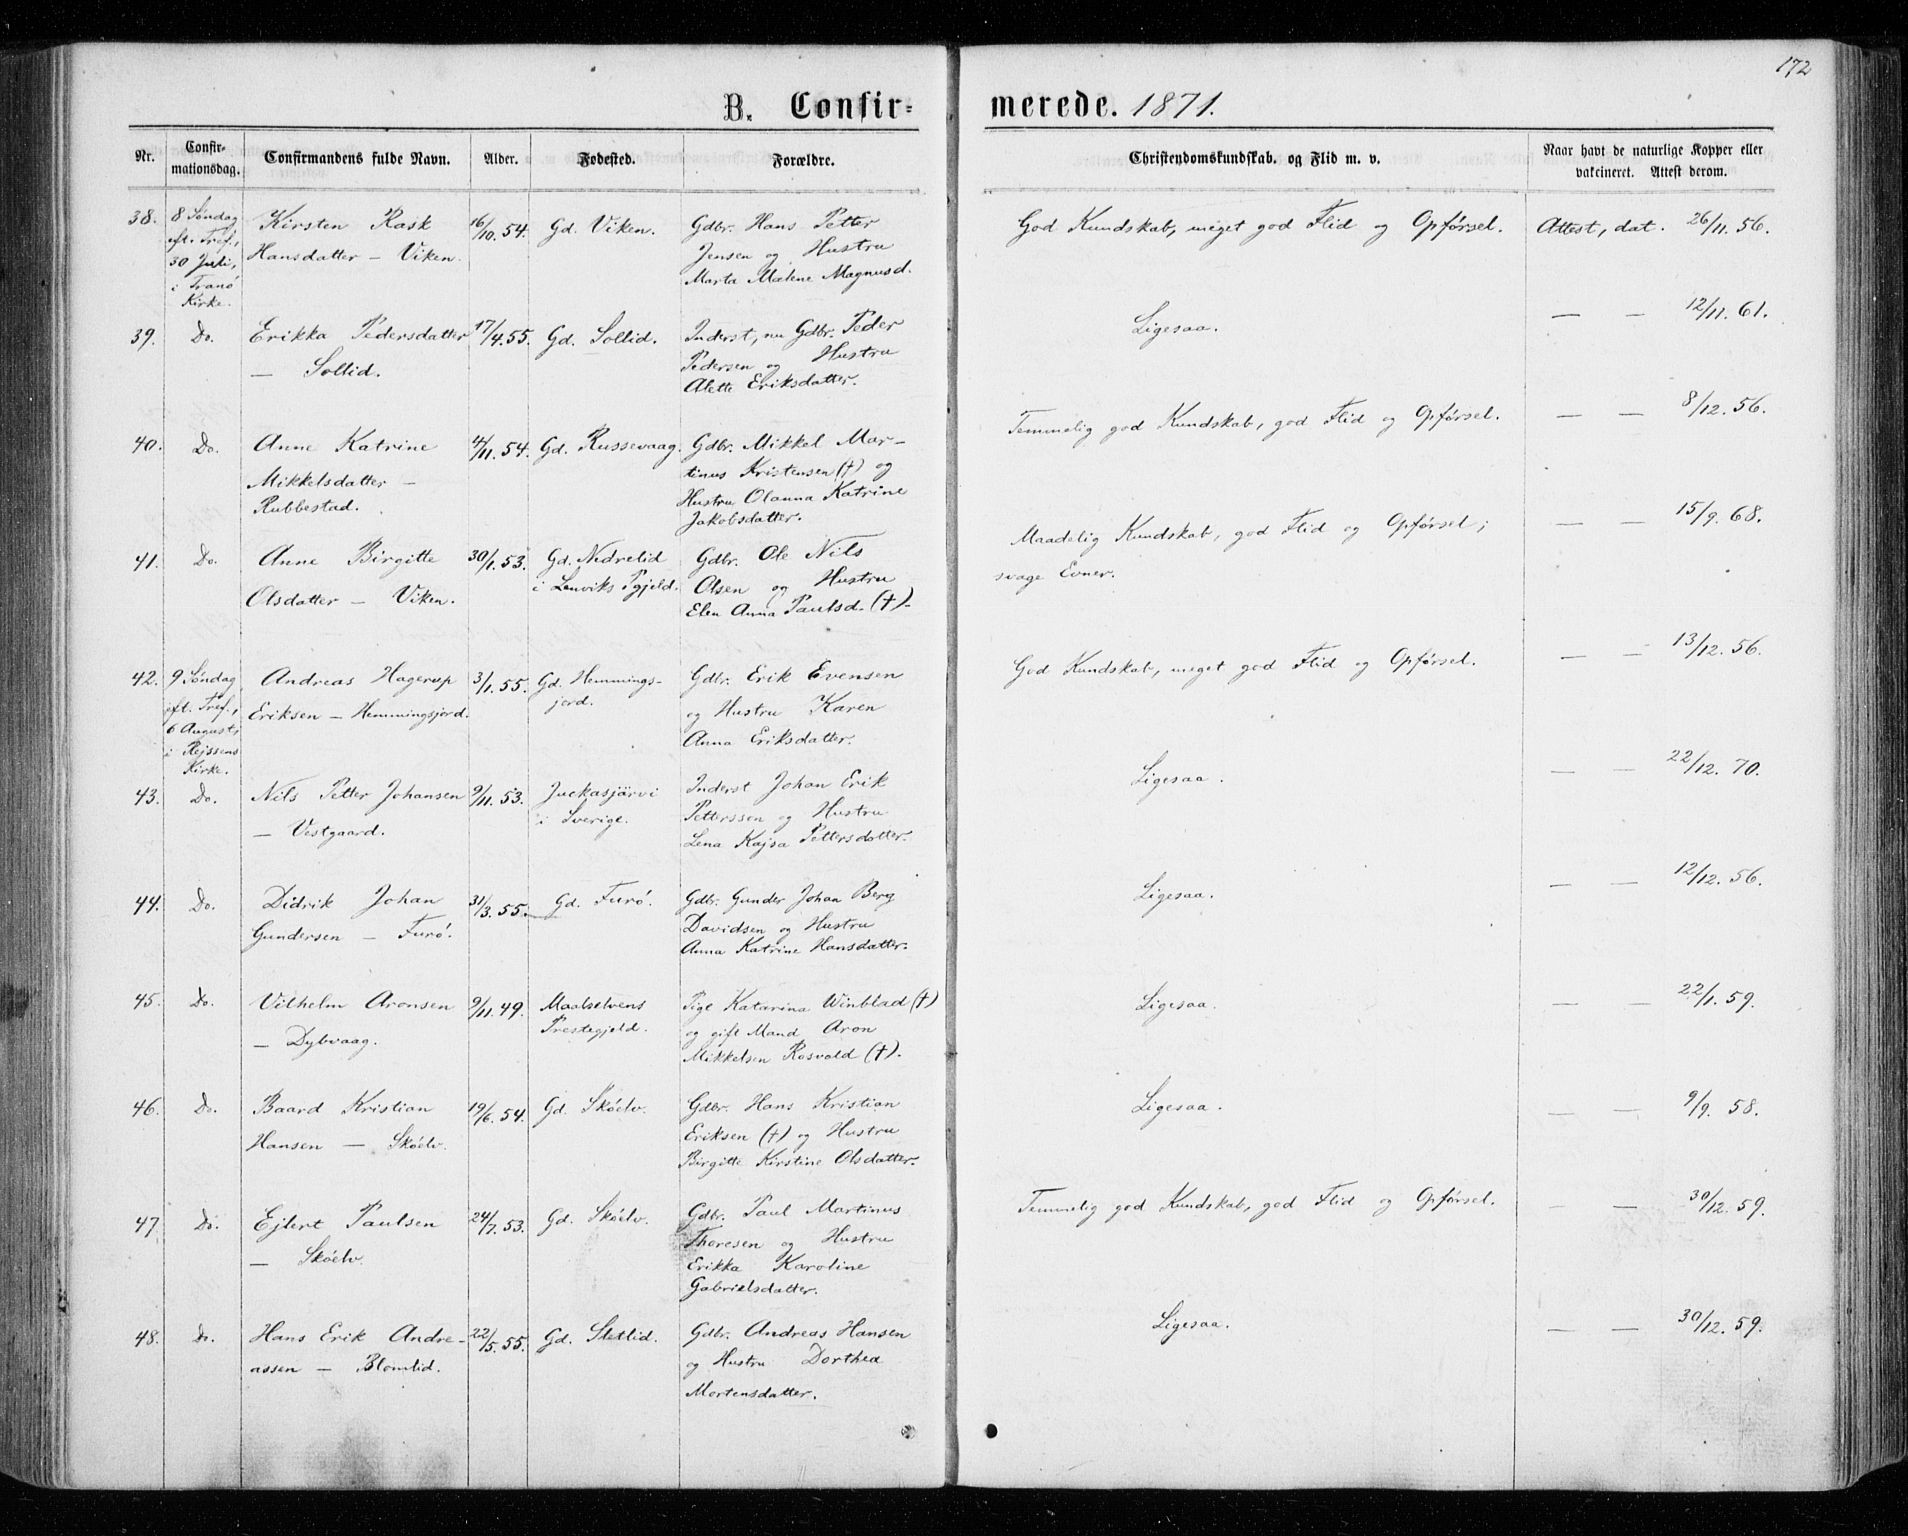 172
B. Confir-
merede. 1871.
Nr.
Confir-
mationsdag.
Confirmandens fulde Navn.
Alder.
Fødested.
Forældre.
Christendomskundskab. og Flid m. v.
Naar havt de naturlige Kopper eller
vakcineret. Attest derom.
38.
8 Søndag
eft. Tref.,
30 Juli,
i Tranö
Kirke.
Kirsten Rask
Hansdatter – Viken.
16/10. 54.
Gd. Viken.
Gdbr. Hans Petter
Jensen og Hustru
Marta Malene Magnusd.
God Kundskab, meget god Flid og Opförsel.
Attest, dat. 26/11. 56.
39.
Do.
Erikka Pedersdatter
– Sollid.
17/4. 55.
Gd. Sollid.
Inderst, nu Gdbr. Peder
Pedersen og Hustru
Alette Eriksdatter.
Ligesaa.
— — 12/11. 61.
40.
Do.
Anne Katrine
Mikkelsdatter –
Rubbestad.
4/11. 54.
Gd. Russevaag.
Gdbr. Mikkel Mar-
tinus Kristensen (†) og
Hustru Olanna Katrine
Jakobsdatter.
Temmelig god Kundskab, god Flid og Opförsel.
— — 8/12. 56.
41.
Do.
Anne Birgitte
Olsdatter – Viken.
30/1. 53.
Gd. Nedrelid
i Lenviks Pgjeld.
Gdbr. Ole Nils
Olsen og Hustru
Elen Anna Paulsd. (†).
Maadelig Kundskab, god Flid og Opförsel;
svage Evner.
— — 15/9. 68.
42.
9 Söndag
eft. Tref.,
6 August,
i Rejssens
Kirke.
Andreas Hagerup
Eriksen – Hemmingsjord.
3/1. 55.
Gd. Hemmings-
jord.
Gdbr. Erik Evensen
og Hustru Karen
Anna Eriksdatter.
God Kundskab, meget god Flid og Opförsel.
— — 13/12. 56.
43.
Do.
Nils Petter Johansen
– Vestgaard.
9/11. 53.
Juckasjärvi
i Sverige.
Inderst Johan Erik
Pettersson og Hustru
Lena Kajsa Pettersdotter.
Ligesaa.
— — 22/12. 70.
44.
Do.
Didrik Johan
Gundersen – Furö.
31/3. 55.
Gd. Furö.
Gdbr. Gunder Johan Berg
Davidsen og Hustru
Anna Katrine Hansdatter.
Ligesaa.
— — 12/12. 56.
45.
Do.
Vilhelm Aronsen
– Dybvaag.
9/11. 49.
Maalselvens
Prestegjeld.
Pige Katarina Winblad (†)
og gift Mand Aron
Mikkelsen Rosvold (†).
Ligesaa.
— — 22/1. 59.
46.
Do.
Baard Kristian
Hansen – Sköelv.
19/6. 54.
Gd. Sköelv.
Gdbr. Hans Kristian
Eriksen (†) og Hustru
Birgitte Kirstine Olsdatter.
Ligesaa.
— — 9/9. 58.
47.
Do.
Ejlert Paulsen
– Sköelv.
24/7. 53.
Gd. Sköelv.
Gdbr. Paul Martinus
Thoresen og Hustru
Erikka Karoline
Gabrielsdatter.
Temmelig god Kundskab, god Flid og Opförsel.
— — 30/12. 59.
48.
Do.
Hans Erik Andre-
assen – Blomlid.
22/5. 55.
Gd. Sletlid.
Gdbr. Andreas Hansen
og Hustru Dorthea
Mortensdatter.
Ligesaa.
— — 30/12. 59.